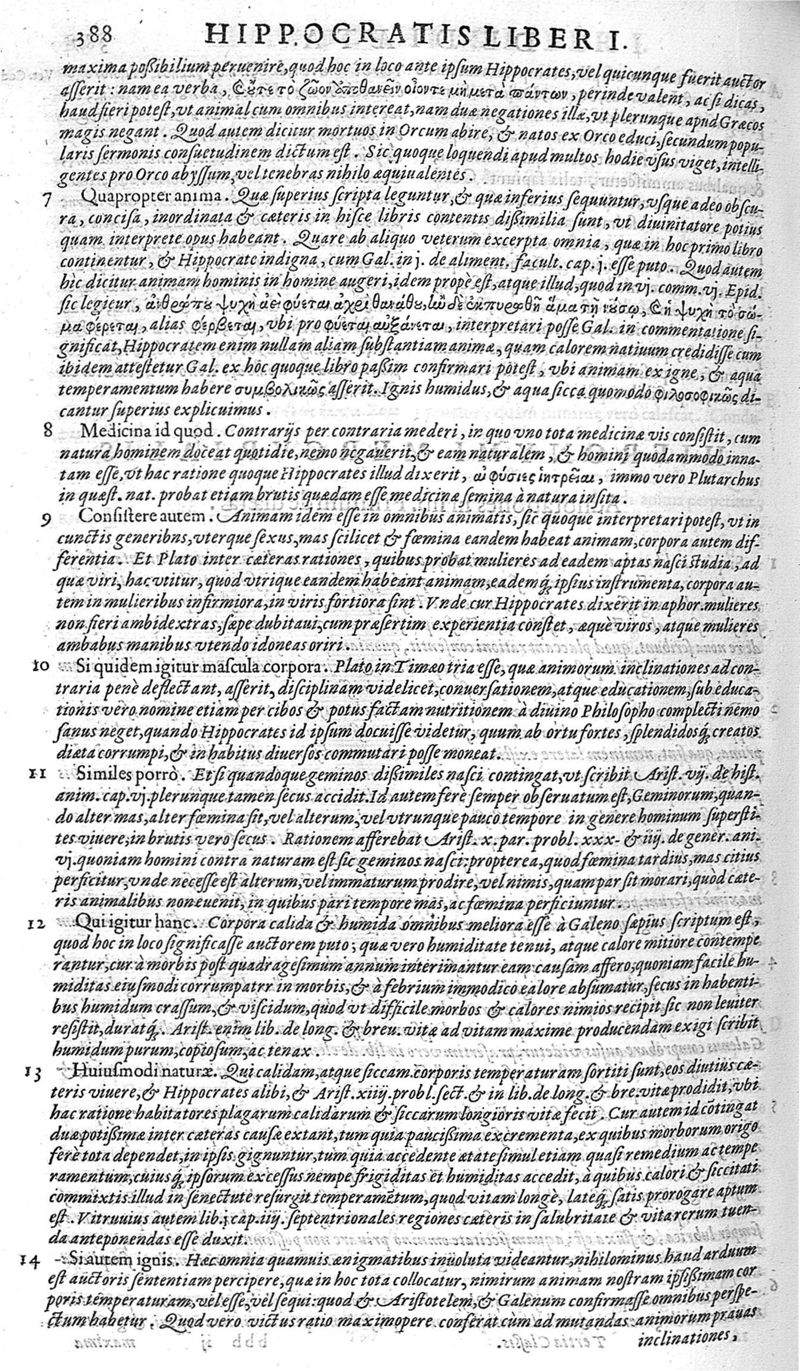 388 HIPPOCRATIS LIBER I.
maxima poßibilium peruenire, quod hoc in loco ante ipsum Hippocrates, vel quicunque fuerit auctor
asserit: nam ea verba, Οὔτε τὸ ζῶον ἀποθανεῖν οἷόντε μὴ μετὰ πάντων, perinde valent, ac si dicas,
haud fieri potest, vt animal cum omnibus intereat, nam duæ negationes illæ, vt plerunque apud Græcos
magis negant. Quod autem dicitur mortuos in Orcum abire, & natos ex Orco educi, secundum popu-
laris sermonis consuetudinem dictum est. Sic quoque loquendi apud multos hodie vsus viget, intelli-
gentes pro Orco abyssum, vel tenebras nihilo æquiualentes.
7 Quapropter anima. Quæ superius scripta leguntur, & quæ inferius sequuntur, vsque adeo obscu-
ra, concisa, inordinata & cæteris in hisce libris contentis dißimilia sunt, vt diuinitatore potius
quam interprete opus habeant. Quare ab aliquo veterum excerpta omnia, quæ in hoc primo libro
continentur, & Hippocrate indigna, cum Gal. in j. de aliment. facult. cap. j. esse puto. Quod autem
hîc dicitur animam hominis in homine augeri, idem propè est, atque illud, quod in vj. comm. vj. Epid.
sic legitur, ἀνθρώπου ψυχὴ ἀεὶ φύεται ἄχρι θανάτου, ἢν δὲ ἐκπυρωθῇ ἅμα τῇ νούσῳ, καὶ ἡ ψυχὴ τὸ σῶ-
μα φέρεται, alias φέρβεται, vbi pro φύεται αὐξάνεται, interpretari posse Gal. in commentatione si-
gnificat, Hippocratem enim nullam aliam substantiam animæ, quam calorem natiuum credidisse cum
ibidem attestetur Gal. ex hoc quoque libro paßim confirmari potest, vbi animam ex igne, & aqua
temperamentum habere συμβολικῶς asserit. Ignis humidus, & aqua sicca quomodo φιλοσοφικῶς di-
cantur superius explicuimus.
8 Medicina id quod. Contrarijs per contraria mederi, in quo vno tota medicinæ vis consistit, cum
natura hominem doceat quotidie, nemo negauerit, & eam naturalem, & homini quodammodo inna-
tam esse, vt hac ratione quoque Hippocrates illud dixerit, αἱ φύσιες ἰητρεῖαι, immo vero Plutarchus
in quæst. nat. probat etiam brutis quædam esse medicinæ semina à natura insita.
9 Consistere autem. Animam idem esse in omnibus animatis, sic quoque interpretari potest, vt in
cunctis generibns, vterque sexus, mas scilicet & fœmina eandem habeat animam, corpora autem dif-
ferentia. Et Plato inter cæteras rationes, quibus probat mulieres ad eadem aptas nasci studia, ad
quæ viri, hac vtitur, quod vtrique eandem habeant animam, eademq́; ipsius instrumenta, corpora au-
tem in mulieribus infirmiora, in viris fortiora sint. Vnde cur Hippocrates dixerit in aphor. mulieres
non fieri ambidextras, sæpe dubitaui, cum præsertim experientia constet, æquè viros, atque mulieres
ambabus manibus vtendo idoneas oriri.
10 Si quidem igitur mascula corpora. Plato in Timæo tria esse, quæ animorum inclinationes ad con-
traria penè deflectant, asserit, disciplinam videlicet, conuersationem, atque educationem, sub educa-
tionis vero nomine etiam per cibos & potus factam nutritionem à diuino Philosopho complecti nemo
sanus neget, quando Hippocrates id ipsum docuisse videtur, quum ab ortu fortes, splendidosq́; creatos
diæta corrumpi, & in habitus diuersos commutari posse moneat.
11 Similes porrò. Et si quandoque geminos dißimiles nasci contingat, vt scribit Arist. vij. de hist.
anim. cap. vj. plerunque tamen secus accidit. Id autem ferè semper obseruatum est, Geminorum, quan-
do alter mas, alter fœmina sit, vel alterum, vel vtrunque pauco tempore in genere hominum supersti-
tes viuere, in brutis vero secus. Rationem afferebat Arist. x. par. probl. xxx. & iiij. de gener. ani.
vj. quoniam homini contra naturam est sic geminos nasci: propterea, quod fœmina tardius, mas citius
perficitur, vnde necesse est alterum, vel immaturum prodire, vel nimis, quam par sit morari, quòd cæte-
ris animalibus non euenit, in quibus pari tempore mas, ac fœmina perficiuntur.
12 Qui igitur hanc. Corpora calida & humida omnibus meliora esse à Galeno sæpius scriptum est,
quod hoc in loco significasse auctorem puto; quæ vero humiditate tenui, atque calore mitiore contempe
rantur, cur à morbis post quadragesimum annum interimantur eam causam affero; quoniam facile hu-
miditas eiusmodi corrumpatrr in morbis, & à febrium immodico calore absumatur, secus in habenti-
bus humidum crassum, & viscidum, quod vt difficile morbos & calores nimios recipit sic non leuiter
resistit, duratq́;. Arist. enim lib. de long. & breu. vitæ ad vitam maxime producendam exigi scribit
humidum purum, copiosum, ac tenax.
13 Huiusmodi naturæ. Qui calidam, atque siccam corporis temperaturam sortiti sunt, eos diutius cæ-
teris viuere, & Hippocrates alibi, & Arist. xiiij. probl. sect. & in lib. de long. & bre. vitæ prodidit, vbi
hac ratione habitatores plagarum calidarum & siccarum longioris vitæ fecit. Cur autem id cõtingat
duæ potißimæ inter cæteras causæ extant, tum quia paucißima excrementa, ex quibus morborum origo
ferè tota dependet, in ipsis gignuntur, tum quia accedente ætate simul etiam quasi remedium ac tempe
ramentum, cuiusq́; ipsorum excessus nempe frigiditas et humiditas accedit, à quibus calori & siccitati
commixtis illud in senectute resurgit temperamẽtum, quod vitam longè, lateq́; satis prorogare aptum
est. Vitruuius autem lib. j. cap. iiij. septentrionales regiones cæteris in salubritate & vita rerum tuen-
da anteponendas esse duxit.
14 Si autem ignis. Hæc omnia quamuis ænigmatibus inuoluta videantur, nihilominus haud arduum
est auctoris sententiam percipere, quæ in hoc tota collocatur, nimirum animam nostram ipsißimam cor
poris temperaturam, vel esse, vel sequi: quod & Aristotelem, & Galenum confirmasse omnibus perspe-
ctum habetur. Quod vero victus ratio maximopere conferat cùm ad mutandas animorum prauas
inclinationes,